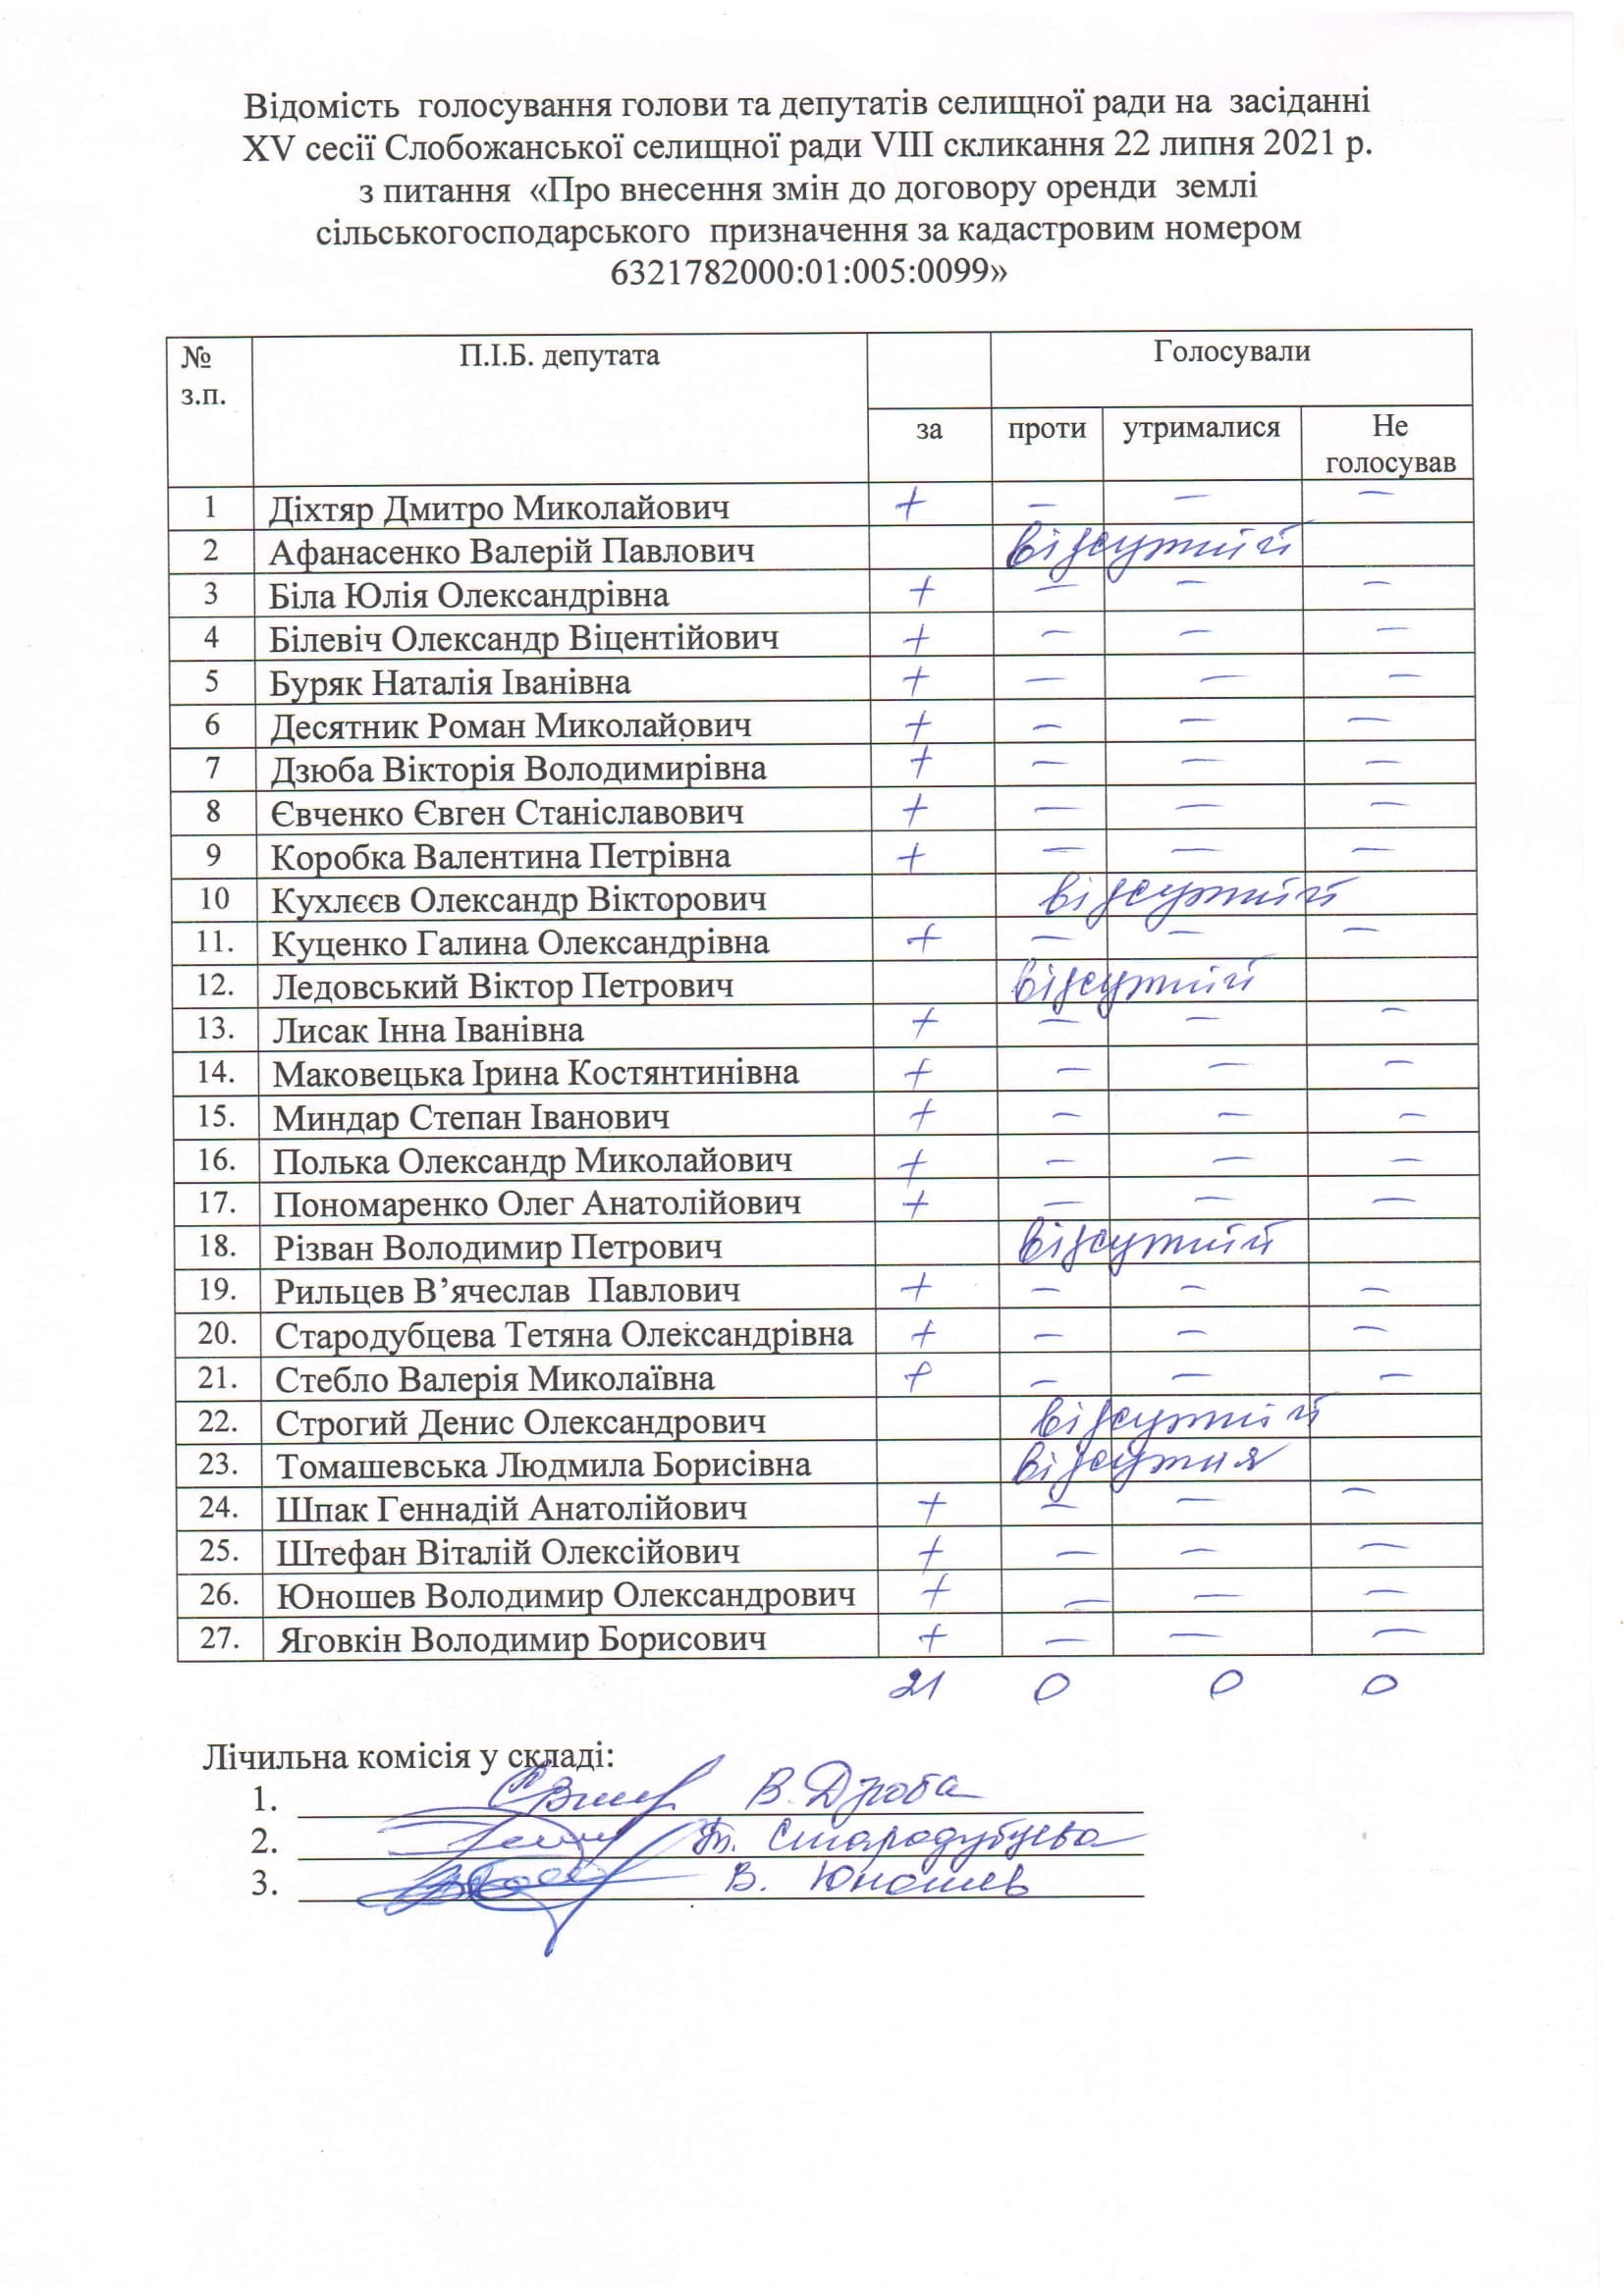 Відомість голосування голови та депутатів селищної ради на засіданні
XV сесії Слобожанської селищної ради VIII скликання 22 липня 2021 р.
з питання «Про внесення змін до договору оренди землі
сільськогосподарського призначення за кадастровим номером
6321782000:01:005:0099»
№ з.п. П.І.Б. депутата Голосували
за проти утрималися Не голосував
1 Діхтяр Дмитро Миколайович + – – –
2 Афанасенко Валерій Павлович відсутній
3 Біла Юлія Олександрівна + – – –
4 Білевіч Олександр Віцентійович + – – –
5 Буряк Наталія Іванівна + – – –
6 Десятник Роман Миколайович + – – –
7 Дзюба Вікторія Володимирівна + – – –
8 Євченко Євген Станіславович + – – –
9 Коробка Валентина Петрівна + – – –
10 Кухлєєв Олександр Вікторович відсутній
11. Куценко Галина Олександрівна + – – –
12. Ледовський Віктор Петрович відсутній
13. Лисак Інна Іванівна + – – –
14. Маковецька Ірина Костянтинівна + – – –
15. Миндар Степан Іванович + – – –
16. Полька Олександр Миколайович + – – –
17. Пономаренко Олег Анатолійович + – – –
18. Різван Володимир Петрович відсутній
19. Рильцев В’ячеслав Павлович + – – –
20. Стародубцева Тетяна Олександрівна + – – –
21. Стебло Валерія Миколаївна + – – –
22. Строгий Денис Олександрович відсутній
23. Томашевська Людмила Борисівна відсутня
24. Шпак Геннадій Анатолійович + – – –
25. Штефан Віталій Олексійович + – – –
26. Юношев Володимир Олександрович + – – –
27. Яговкін Володимир Борисович + – – –
21 0 0 0
Лічильна комісія у складі:
1. В. Дзюба
2. Т. Стародубцева
3. В. Юношев